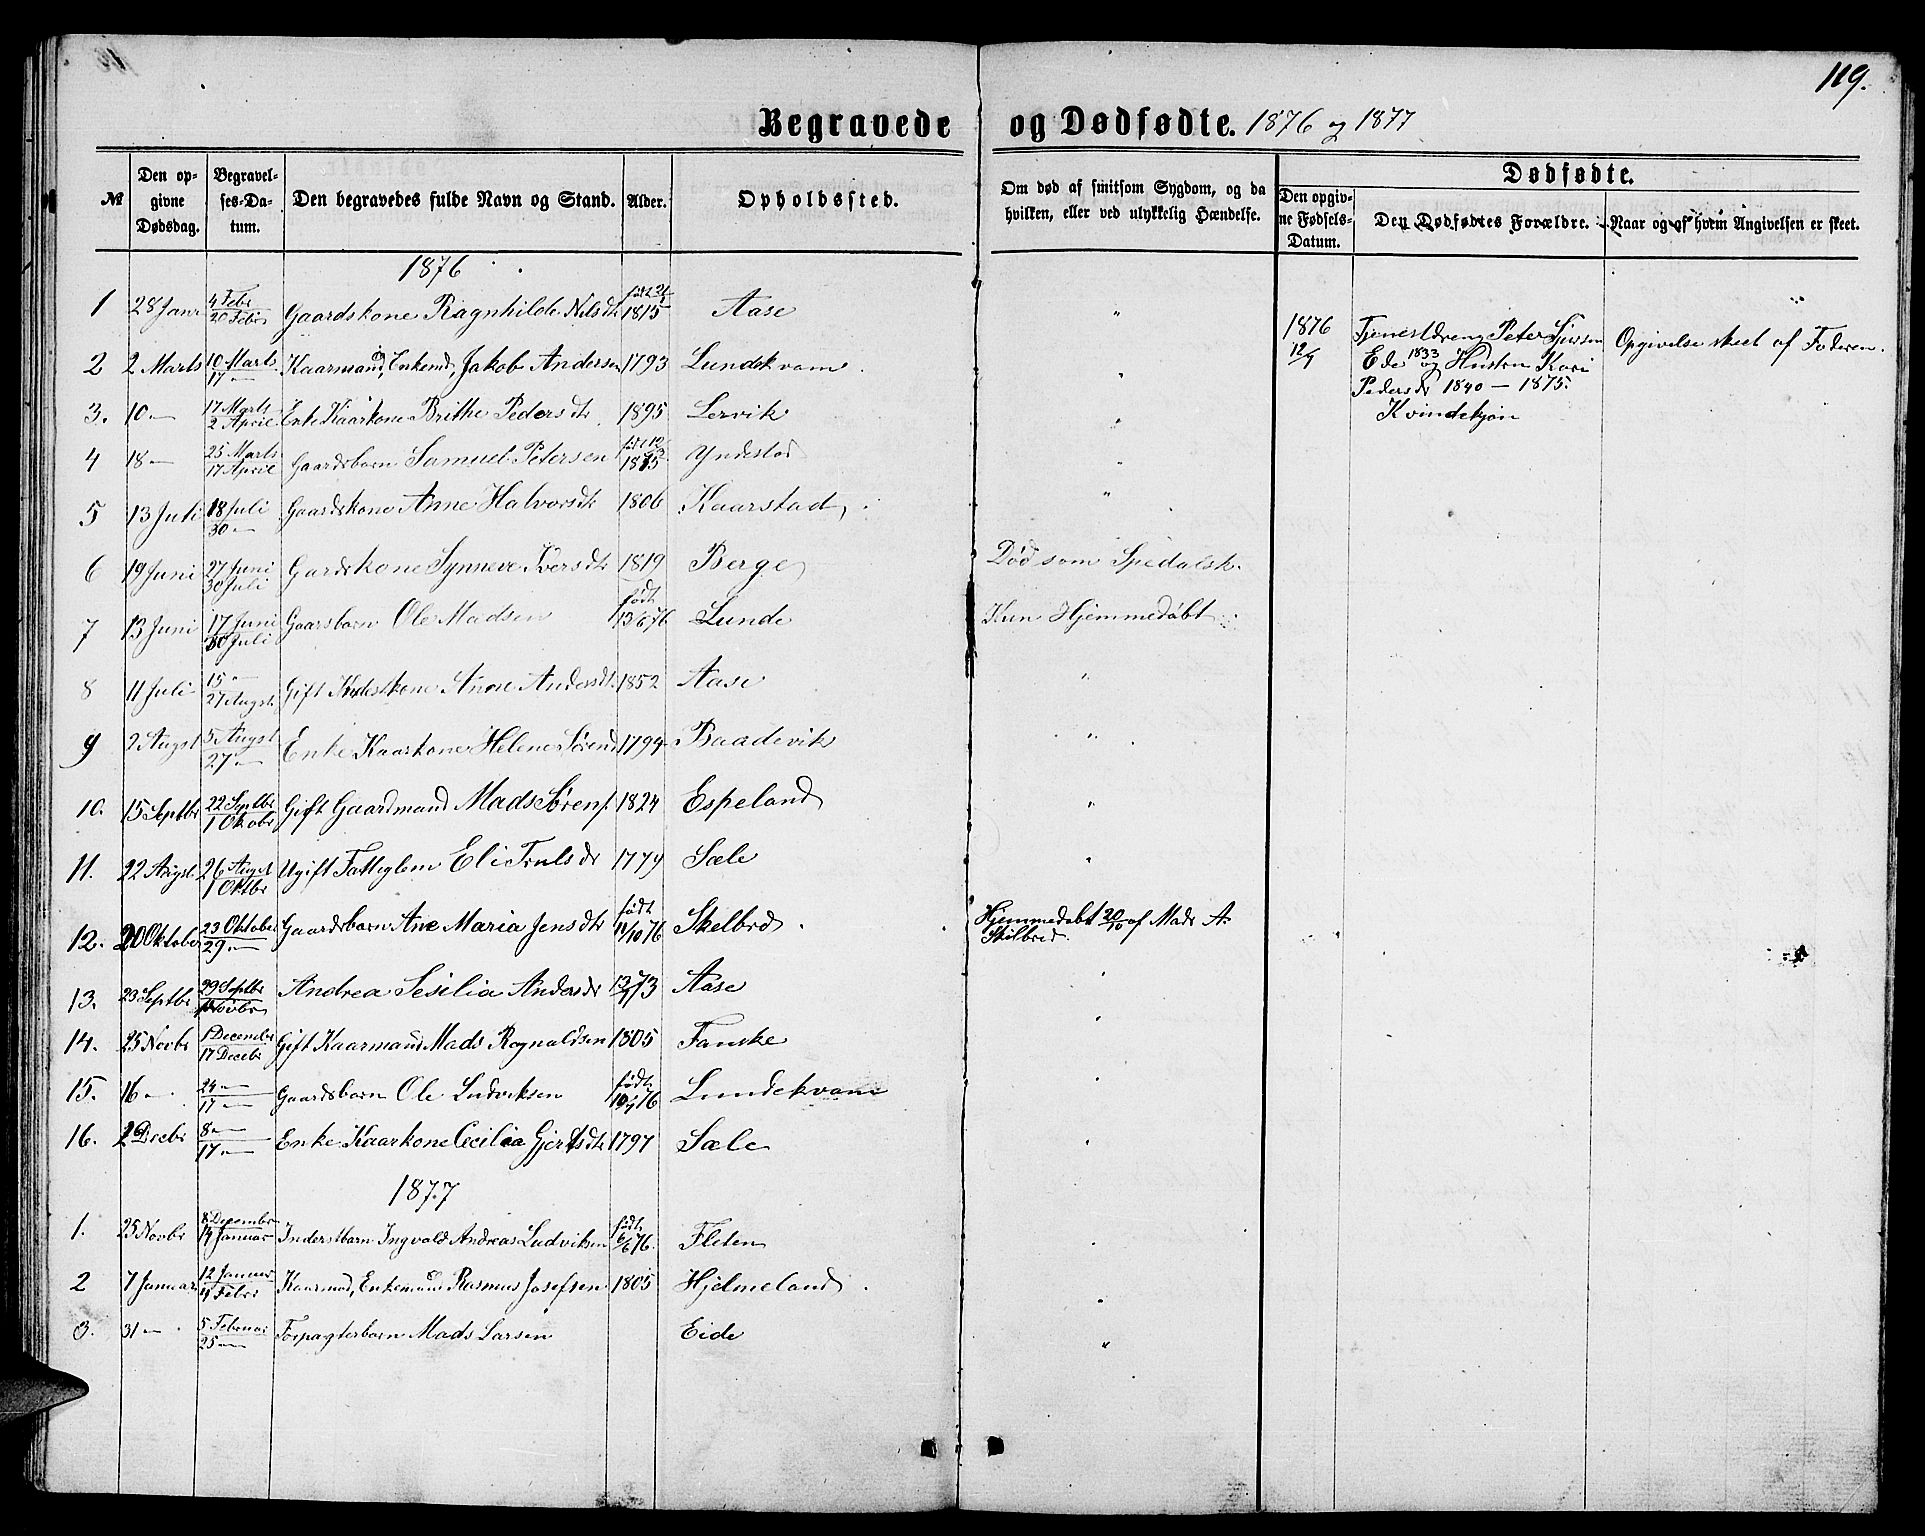 119.
Begravede og Dødfødte. 1876 og 1877
№
Den opgivne Dødsdag.
Begravelses-Datum.
Den begravedes fulde Navn og Stand.
Alder.
Opholdssted.
Om død af smitsom Sygdom, og da hvilken, eller ved ulykkelig Hændelse.
Dødfødte.
Den opgivne Fødsels-Datum.
Den Dødfødtes Forældre.
Naar og af hvem Angivelsen er skeet.
1876
1 28 Janr 4 Febr 20 Febr Gaardskone Ragnhilde Nilsdtr 1815 Aase "
2 2 Marts 10 Marts 17 — Kaarmand, Enkemd, Jakob Andersen 1793 Lundekvam "
3. 10 — 17 Marts 2 April Enke Kaarkone Brithe Pedersdtr 1895 Lervik "
4 18 — 25 Marts 17 April Gaardsbarn Samuel Petersen 1875 Yndestad "
5 13 Juli 18 Juli 30 — Gaardskone Anne Halvorsdtr 1806 Kaarstad "
6 19 Juni 27 Juni 30 Juli Gardskone Synneve Iversdtr 1819 Berge Død som Spedalsk.
7 13 Juni 17 Juni 30 Juli Gaarsbarn Ole Madsen født 13/6 76 Lunde Kun Hjemmedøbt
8 11 Juli 15 — 27 Augst Gift Anne Andersdt. 1852 Aase "
9 2 Augst 5 Augst 27 — Enke Kaarkone Helene Sørend 1794 Baadevik "
10. 15 Septbr 22 Septbr 1 Oktobr Gift Gaardmand Mads Sørens. 1824 Espeland "
11. 22 Augst 26 Augst 1 Oktbr Ugift Fattiglem Eli Trulsdr 1779 Sæle "
12. 20 Oktober 23 Oktober 29 — Gaardsbarn Ane Maria Jensdtr født 11/10 76 Skelbrd Hjemmedøbt 20/10 af Mads A. Skilbred.
13. 23 Septbr 29 Septbr Novbr Andrea Sesilia Andersdr 73 Aase
14. 25 Novbr 1 December 17 Decebr Gift Kaarmand Mads Rognaldsen 1805 Fanske
15. 16 — 24 — 17 — Gaardsbarn Ole Ludviksen født 76 Lundekvam
16. 2 Decbr 8 — 17 — Enke Kaarkone Cecilia Gjertsdtr 1797 Sæle
1877
1. 25 Novbr 8 December 14 Januar Inderstbarn Ingvald Andreas Ludviksen født 6/6 76. Fleten
2 7 Januar 12 Januar 4 Febr Kaarmad, Enkemand Rasmus Josefsen 1805 Hjelmeland
3. 31 — 5 Februar 25 — Forpagterbarn Mads Larsen Eide "
1876 12/9
Tjenestdreng Peter Sjursen
Ede 1833 og Hustru Kari
Pedersdr 1840 — 1875.
Kvindekjøn
Opgivelse skeet af Faderen.